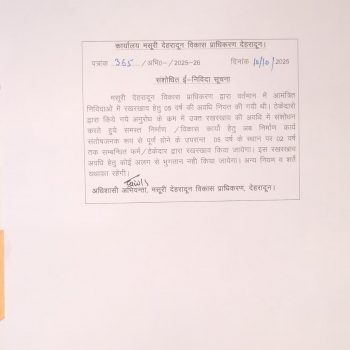 कार्यालय मसूरी देहरादून विकास प्राधिकरण देहरादून।
पत्रांक 365 /अभि0- /2025-26 दिनांक 10/10 /2025
संशोधित ई-निविदा सूचना
मसूरी देहरादून विकास प्राधिकरण द्वारा वर्तमान में आमंत्रित
निविदाओं मे रखरखाव हेतु 05 वर्ष की अवधि नियत की गयी थी। ठेकेदारो
द्वारा किये गये अनुरोध के कम में उक्त रखरखाव की अवधि मे संशोधन
करते हुये समस्त निर्माण /विकास कार्यो हेतु अब निर्माण कार्य
संतोषजनक रूप से पूर्ण होने के उपरान्त 05 वर्ष के स्थान पर 02 वर्ष
तक सम्बन्धित फर्म/ठेकेदार द्वारा रखरखाव किया जायेगा। इस रखरखाव
अवधि हेतु कोई अलग से भुगतान नही किया जायेगा। अन्य नियम व शर्ते
यथावत रहेगी।
अधिशासी अभियन्ता, मसूरी देहरादून विकास प्राधिकरण, देहरादून।